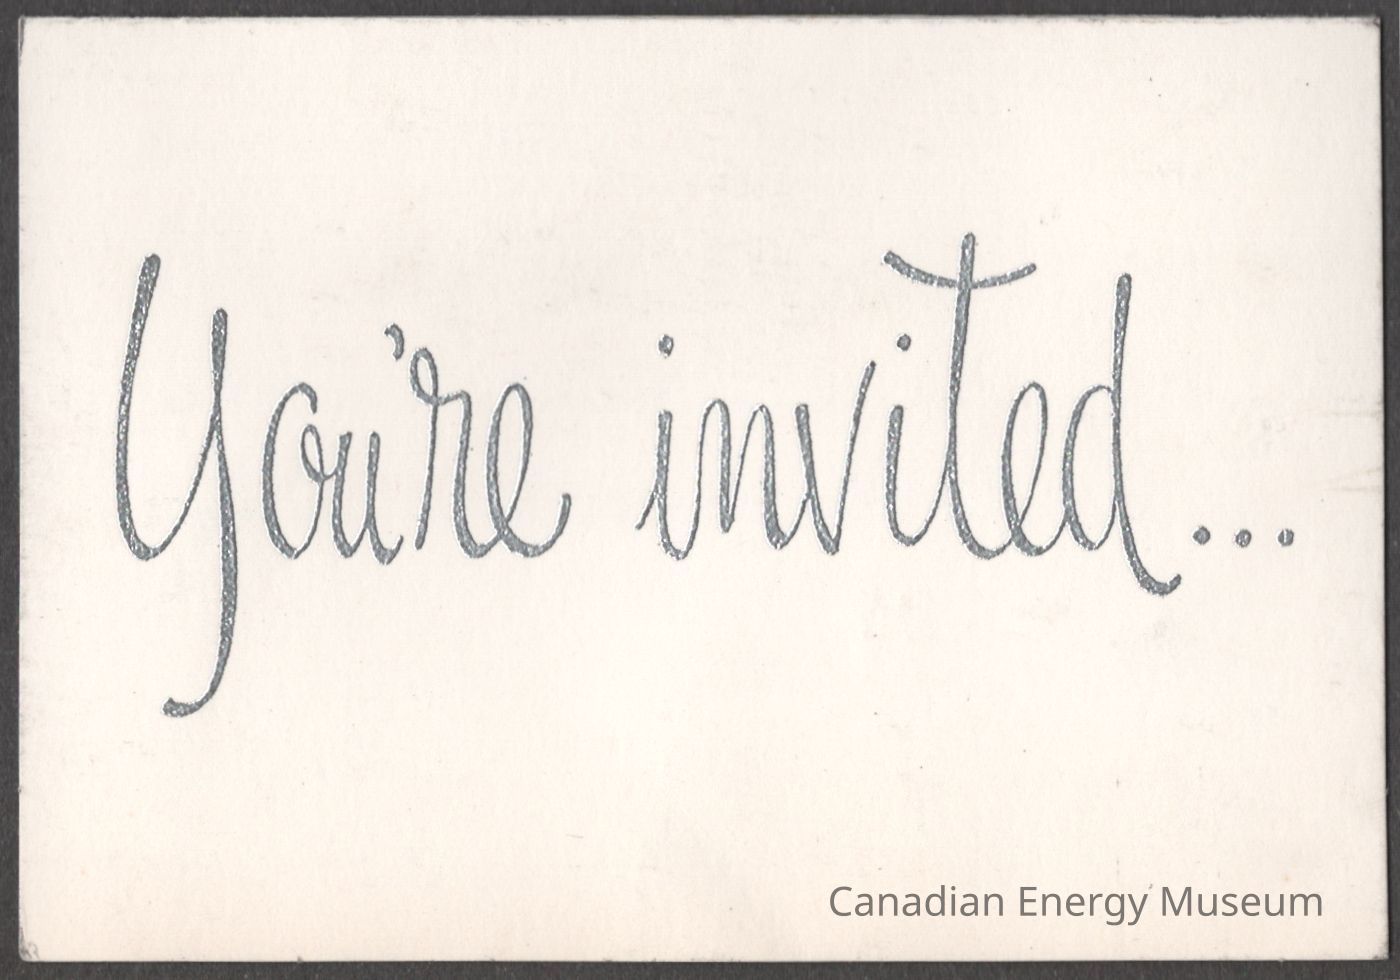 You're invited...
Canadian Energy Museum